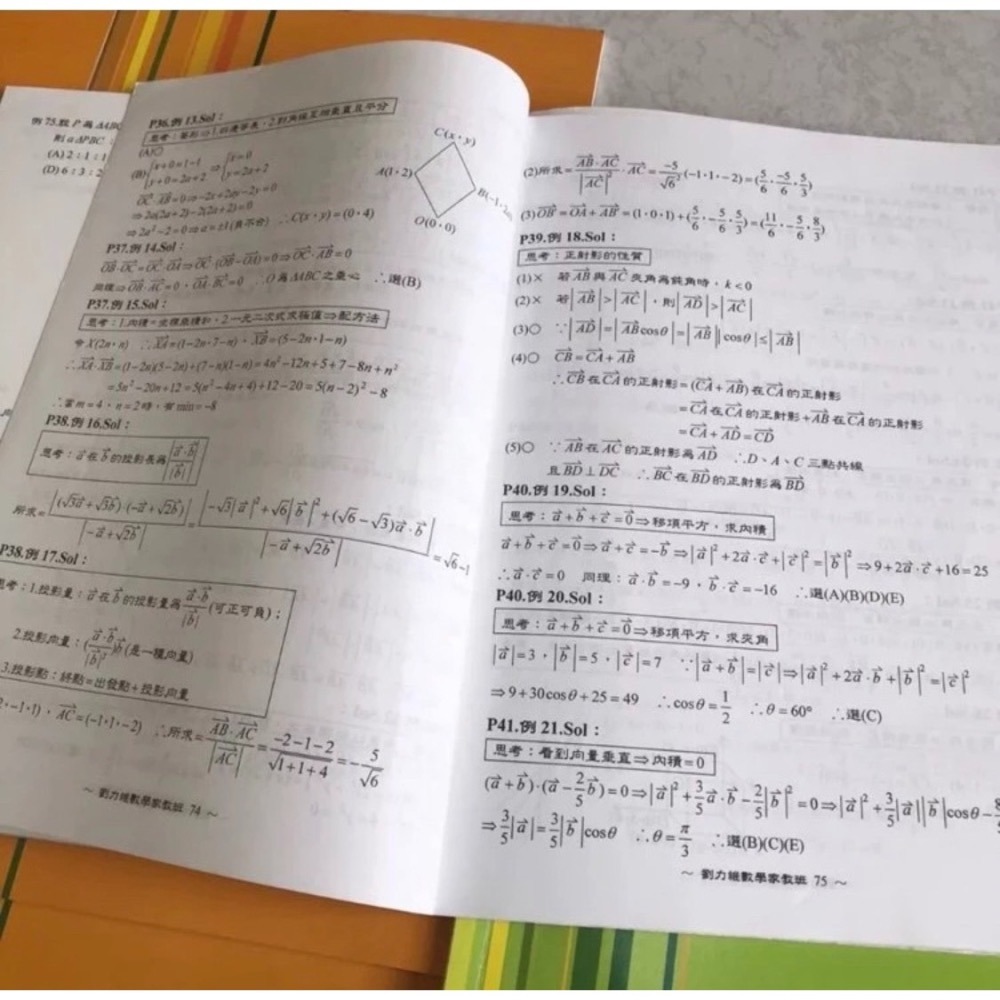 例 75.設 P 為 ΔABC
則 aΔPBC：
(A) 2：1：1
(D) 6：3：2
P36.例 13.Sol：
思考：菱形⇒1.四邊等長，2.對角線互相垂直及平分
(A)○
(B) {x+0=1-1 ⇒ {x=0
y+0=2a+2 y=2a+2
OC·AB=0⇒-2x+2ay-2y=0
⇒2a(2a+2)-2(2a+2)=0
⇒2a²-2=0⇒a=±1(負不合) ∴C(x,y)=(0,4)
C(x,y)
A(1,2)
B(-1,2a)
O(0,0)
P37.例 14.Sol：
OB·OC=OC·OA⇒OC·(OB-OA)=0⇒OC·AB=0
同理⇒OB·AC=0，OA·BC=0 ∴O為ΔABC之垂心 ∴選(B)
P37.例 15.Sol：
思考：1.內積=坐標乘積和，2.一元二次式求極值⇒配方法
令X(2n,n) ∴XA=(1-2n,7-n)，XB=(5-2n,1-n)
∴XA·XB=(1-2n)(5-2n)+(7-n)(1-n)=4n²-12n+5+7-8n+n²
=5n²-20n+12=5(n²-4n+4)+12-20=5(n-2)²-8
∴當m=4，n=2時，有min=-8
P38.例 16.Sol：
思考：a在b的投影長為|a·b|/|b|
所求=|(√3a+√3b)·(-a+√2b)|/|-a+√2b|=|-√3|a|²+√6|b|²+(√6-√3)a·b|/|-a+√2b|=√6-1
P38.例 17.Sol：
思考：1.投影量：a在b的投影量為a·b/|b|(可正可負)；
2.投影向量：(a·b/|b|²)b(是一種向量)
3.投影點：終點=出發點+投影向量
,-1,1)，AC=(-1,1,-2) ∴所求=AB·AC/|AC|=(-2-1-2)/√(1+1+4)=-5/√6
～ 劉力維數學家教班 74 ～
(2)所求=AB·AC/|AC|²·AC=-5/√6²(-1,1,-2)=(5/6,-5/6,5/3)
(3)OB=OA+AB=(1,0,1)+(5/6,-5/6,5/3)=(11/6,-5/6,8/3)
P39.例 18.Sol：
思考：正射影的性質
(1)× 若AB與AC夾角為鈍角時，k<0
(2)× 若|AB|>|AC|，則|AD|>|AC|
(3)○ ∵|AD|=|ABcosθ|=|AB||cosθ|≤|AB|
(4)○ CB=CA+AB
∴CB在CA的正射影=(CA+AB)在CA的正射影
=CA在CA的正射影+AB在CA的正射影
=CA+AD=CD
(5)○ ∵AB在AC的正射影為AD ∴D、A、C三點共線
且BD⊥DC ∴BC在BD的正射影為BD
P40.例 19.Sol：
思考：a+b+c=0⇒移項平方，求內積
a+b+c=0⇒a+c=-b⇒|a|²+2a·c+|c|²=|b|²⇒9+2a·c+16=25
∴a·c=0 同理：a·b=-9，b·c=-16 ∴選(A)(B)(D)(E)
P40.例 20.Sol：
思考：a+b+c=0⇒移項平方，求夾角
|a|=3，|b|=5，|c|=7 ∵|a+b|=|c|⇒|a|²+2a·b+|b|²=|c|²
⇒9+30cosθ+25=49 ∴cosθ=1/2 ∴θ=60° ∴選(C)
P41.例 21.Sol：
思考：看到向量垂直⇒內積=0
(a+b)·(a-2/5b)=0⇒|a|²+3/5a·b-2/5|b|²=0⇒|a|²+3/5|a||b|cosθ-
⇒3/5|a|=3/5|b|cosθ ∴θ=π/3 ∴選(B)(C)(E)
～ 劉力維數學家教班 75 ～